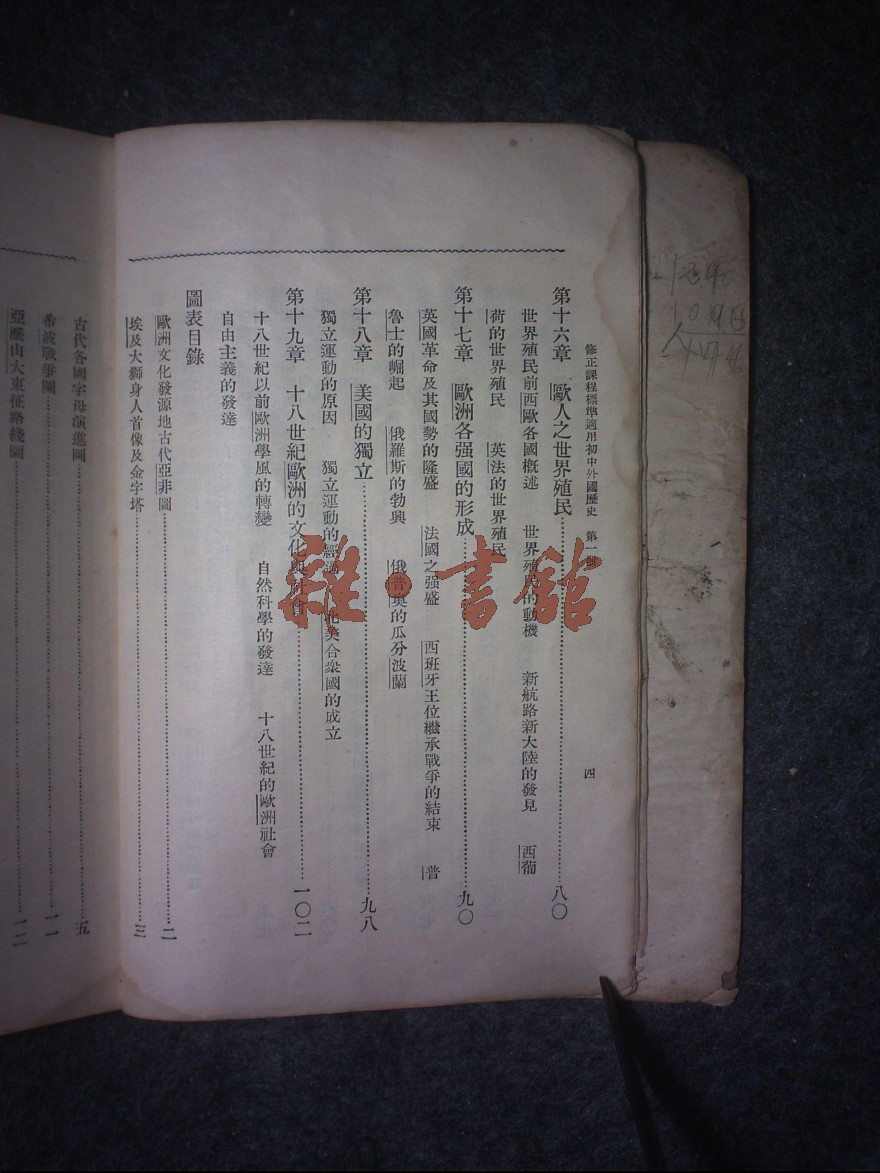 修正課程標準適用初中外國歷史　第一冊　四
第十六章　歐人之世界殖民……八〇
世界殖民前西歐各國概述　世界殖民的動機　新航路新大陸的發見　西葡
荷的世界殖民　英法的世界殖民
第十七章　歐洲各强國的形成……九〇
英國革命及其國勢的隆盛　法國之强盛　西班牙王位繼承戰爭的結束　普
魯士的崛起　俄羅斯的勃興　俄普奧的瓜分波蘭
第十八章　美國的獨立……九八
獨立運動的原因　獨立運動的經過　北美合衆國的成立
第十九章　十八世紀歐洲的文化與社會……一〇二
十八世紀以前歐洲學風的轉變　自然科學的發達　十八世紀的歐洲社會
自由主義的發達
圖表目錄
歐洲文化發源地古代亞非圖……二
埃及大獅身人首像及金字塔……三
古代各國字母演進圖……五
希波戰爭圖……一一
亞歷山大東征路綫圖……一二
雜·書館